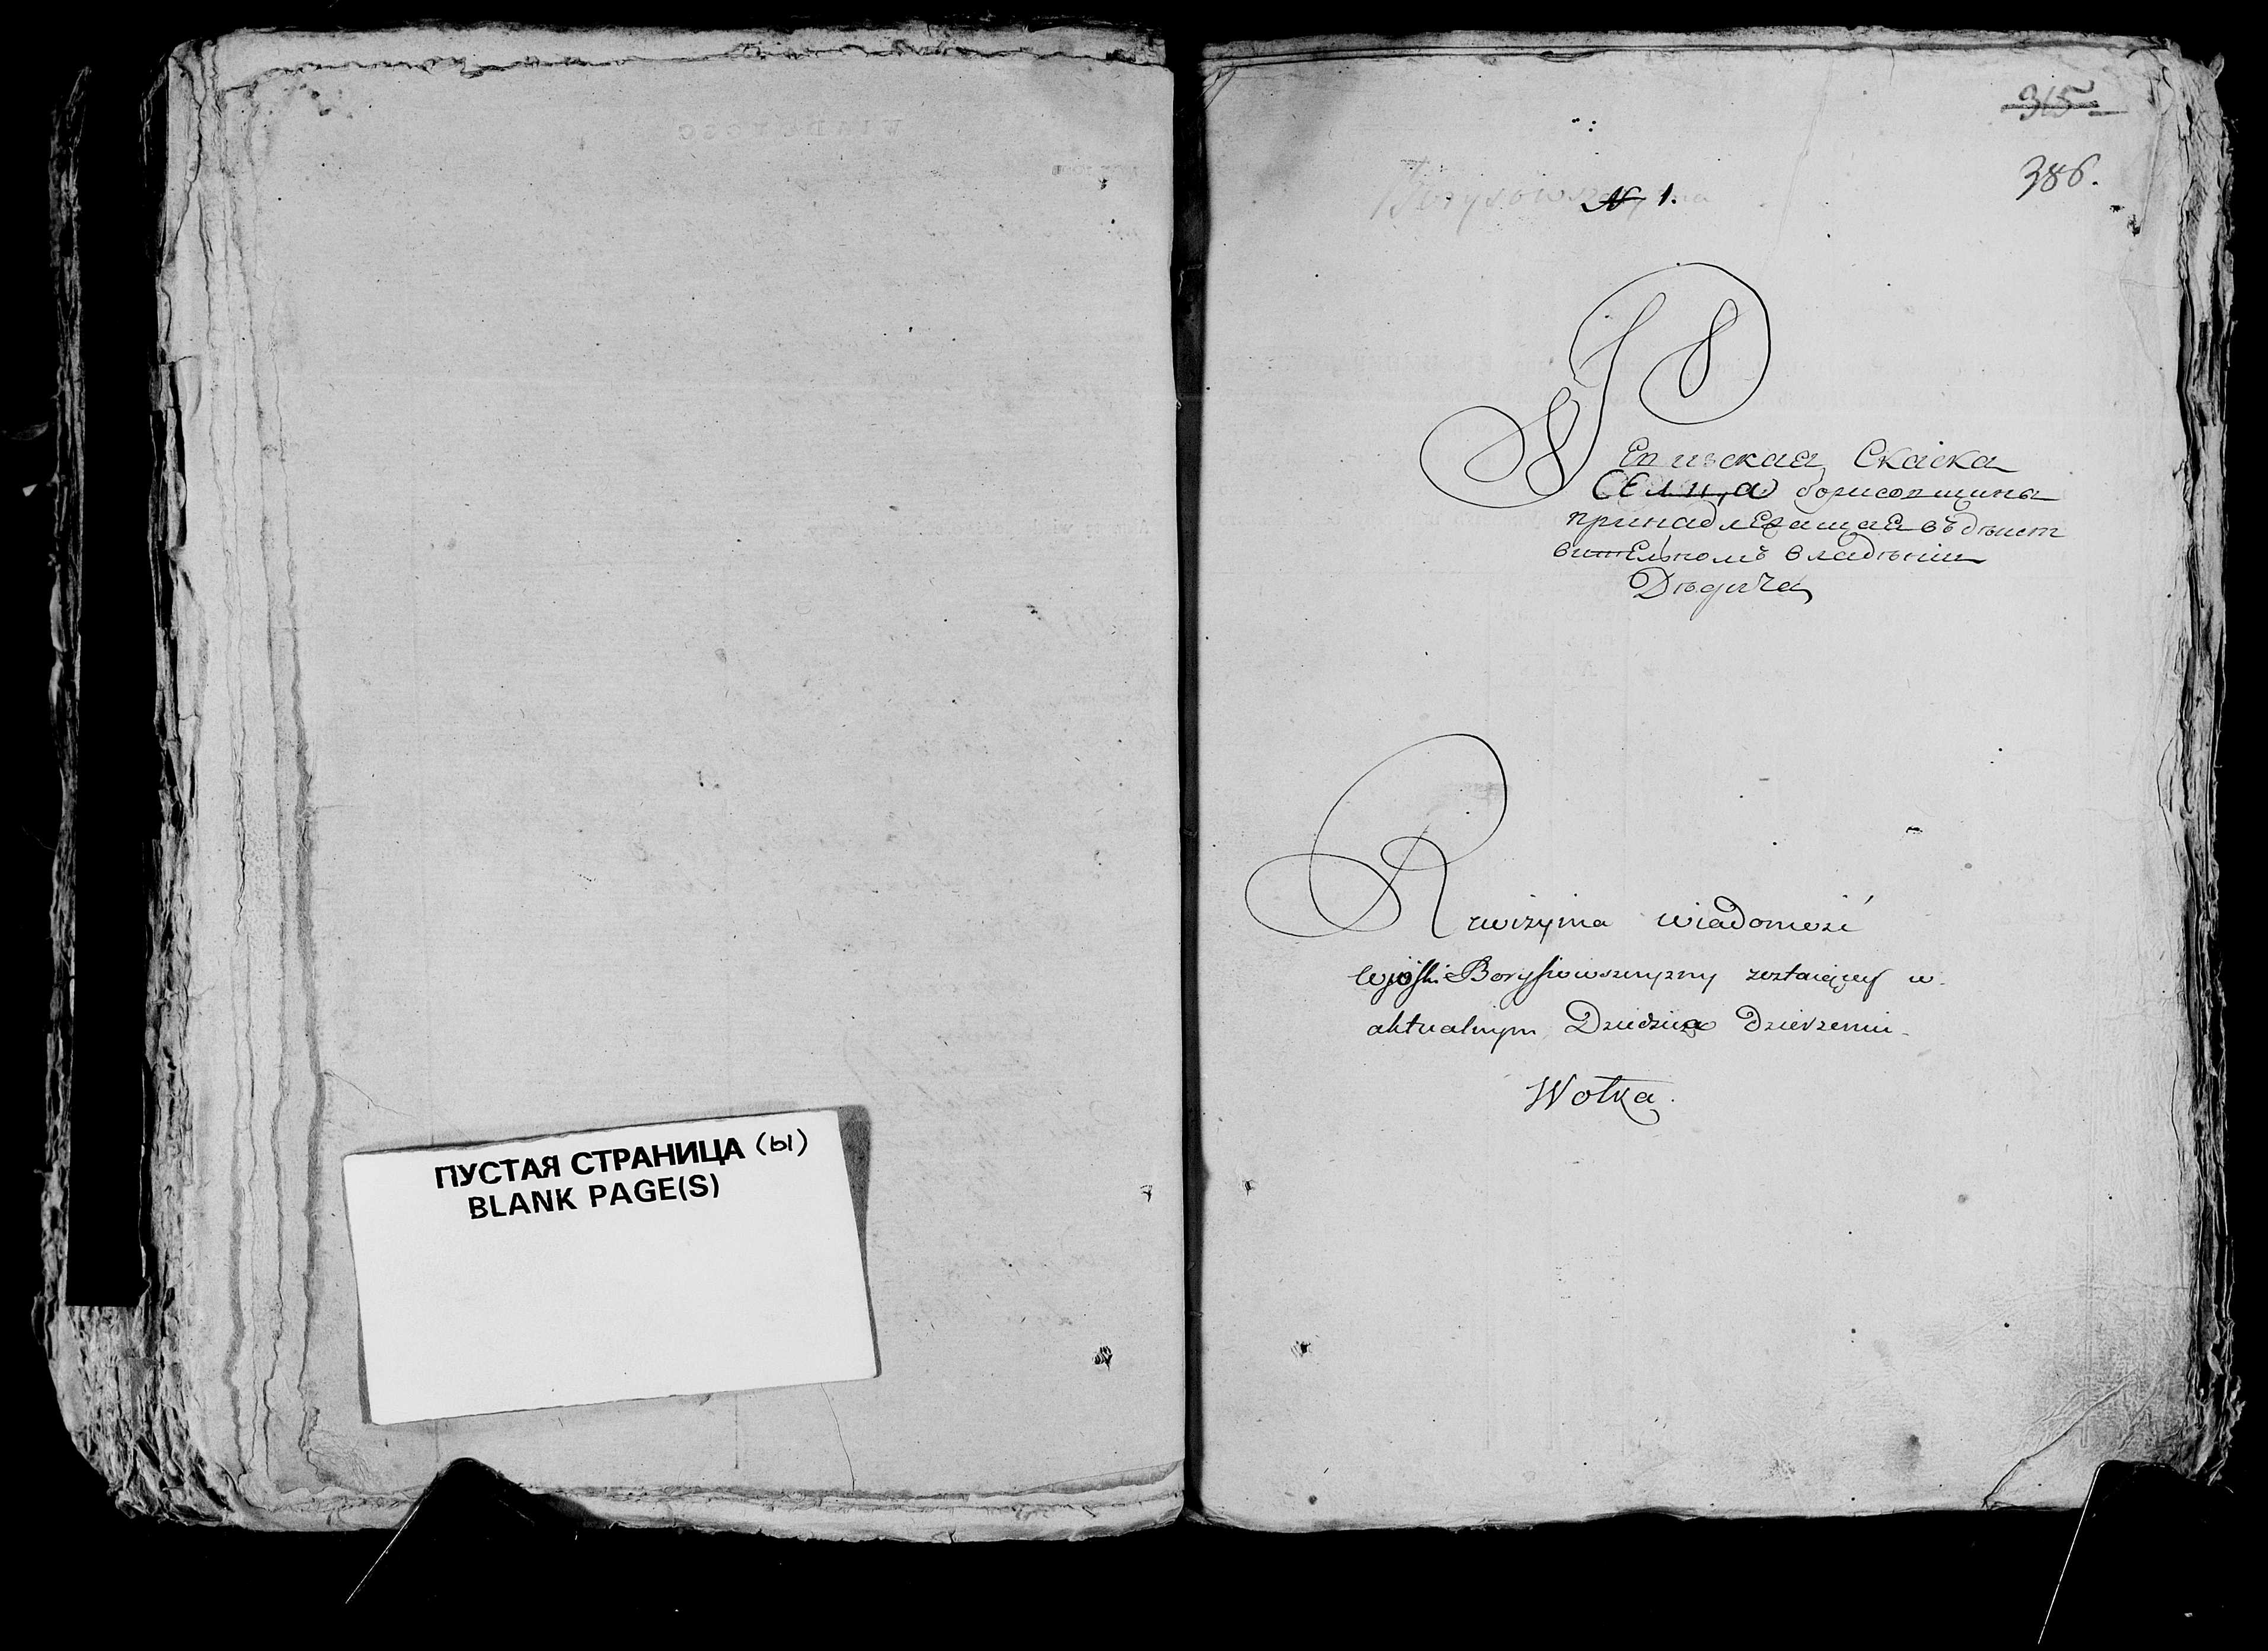 ПУСТАЯ СТРАНИЦА (Ы)
BLANK PAGE(S)
315
386.
Borysowszczyzna
N 1.
Рeвизскаѧ Скаска
Селца борисовщины
принадлежащаѧ въ дѣист
вительномъ владѣніи
Дѣдича
Rewizyina wiadomość
Wioski Borysiowszczyzny zostaiącey w
aktualnym Dziedzica dzierzeniu
Wołka.